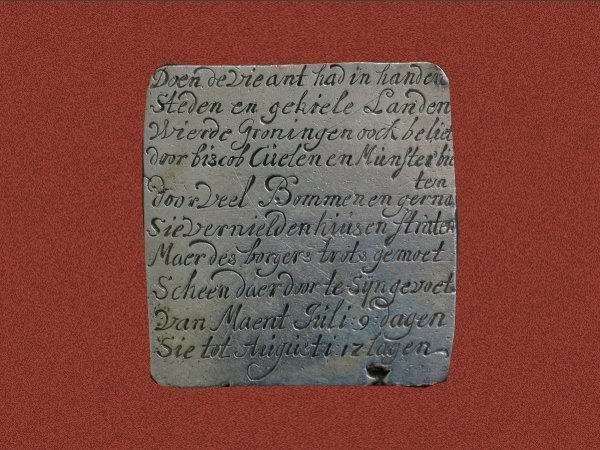 Doen de vieant had in handen
Steden en gehiele Landen
Wierde Groningen oock beliet
door biscob Cuelen en Munster bie
door veel Bommen en gerna
ten
Sie vernielden huis en straten
Maer des borgers trots gemoet
Scheen daer door te syn gevoet
Van Maent Juli 9 dagen
Sie tot Augusti 17 lagen